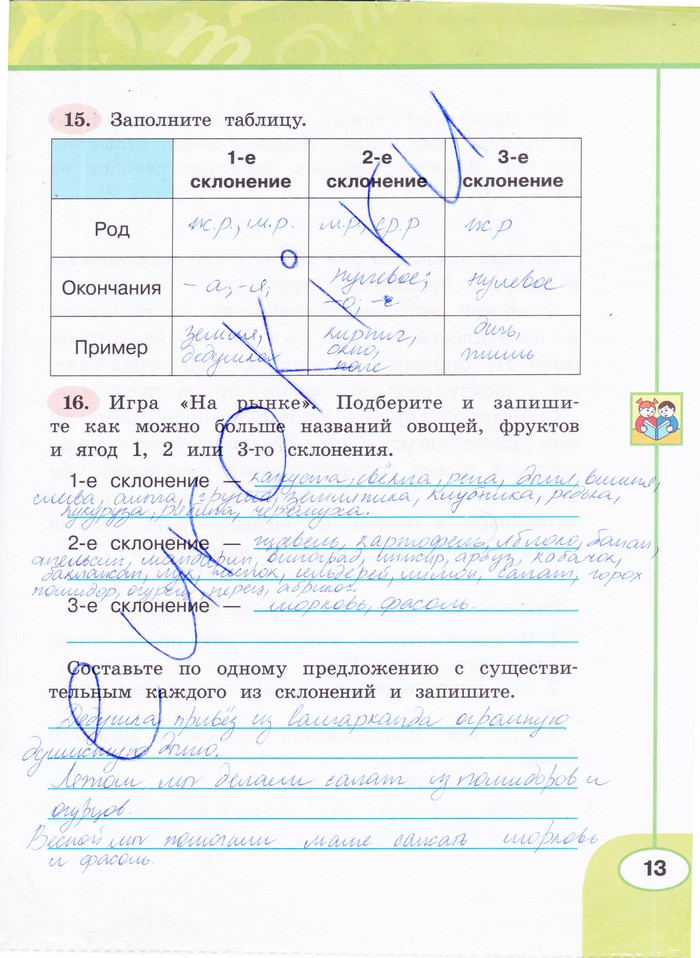 15. Заполните таблицу.
1-е склонение 2-е склонение 3-е склонение
Род ж.р., м.р. м.р., ср.р ж.р
Окончания -а, -я; нулевое; -о; -е нулевое
Пример земля, дедушка кирпич, окно, поле дичь, мышь
16. Игра «На рынке». Подберите и запиши-
те как можно больше названий овощей, фруктов
и ягод 1, 2 или 3-го склонения.
1-е склонение — капуста, свёкла, репа, дыня, вишня,
слива, груша, земляника, клубника, редька,
кукуруза, рябина, черёмуха.
2-е склонение — щавель, картофель, яблоко, банан,
апельсин, мандарин, виноград, инжир, арбуз, кабачок,
баклажан, лук, чеснок, сельдерей, лимон, салат, горох
помидор, огурец, перец, абрикос.
3-е склонение — морковь, фасоль.
Составьте по одному предложению с существи-
тельным каждого из склонений и запишите.
Дедушка привёз из огромную
душистую дыню.
Летом мы делаем салат из помидоров и
огурцов.
Весной мы помогали маме сажать морковь
и фасоль.
13